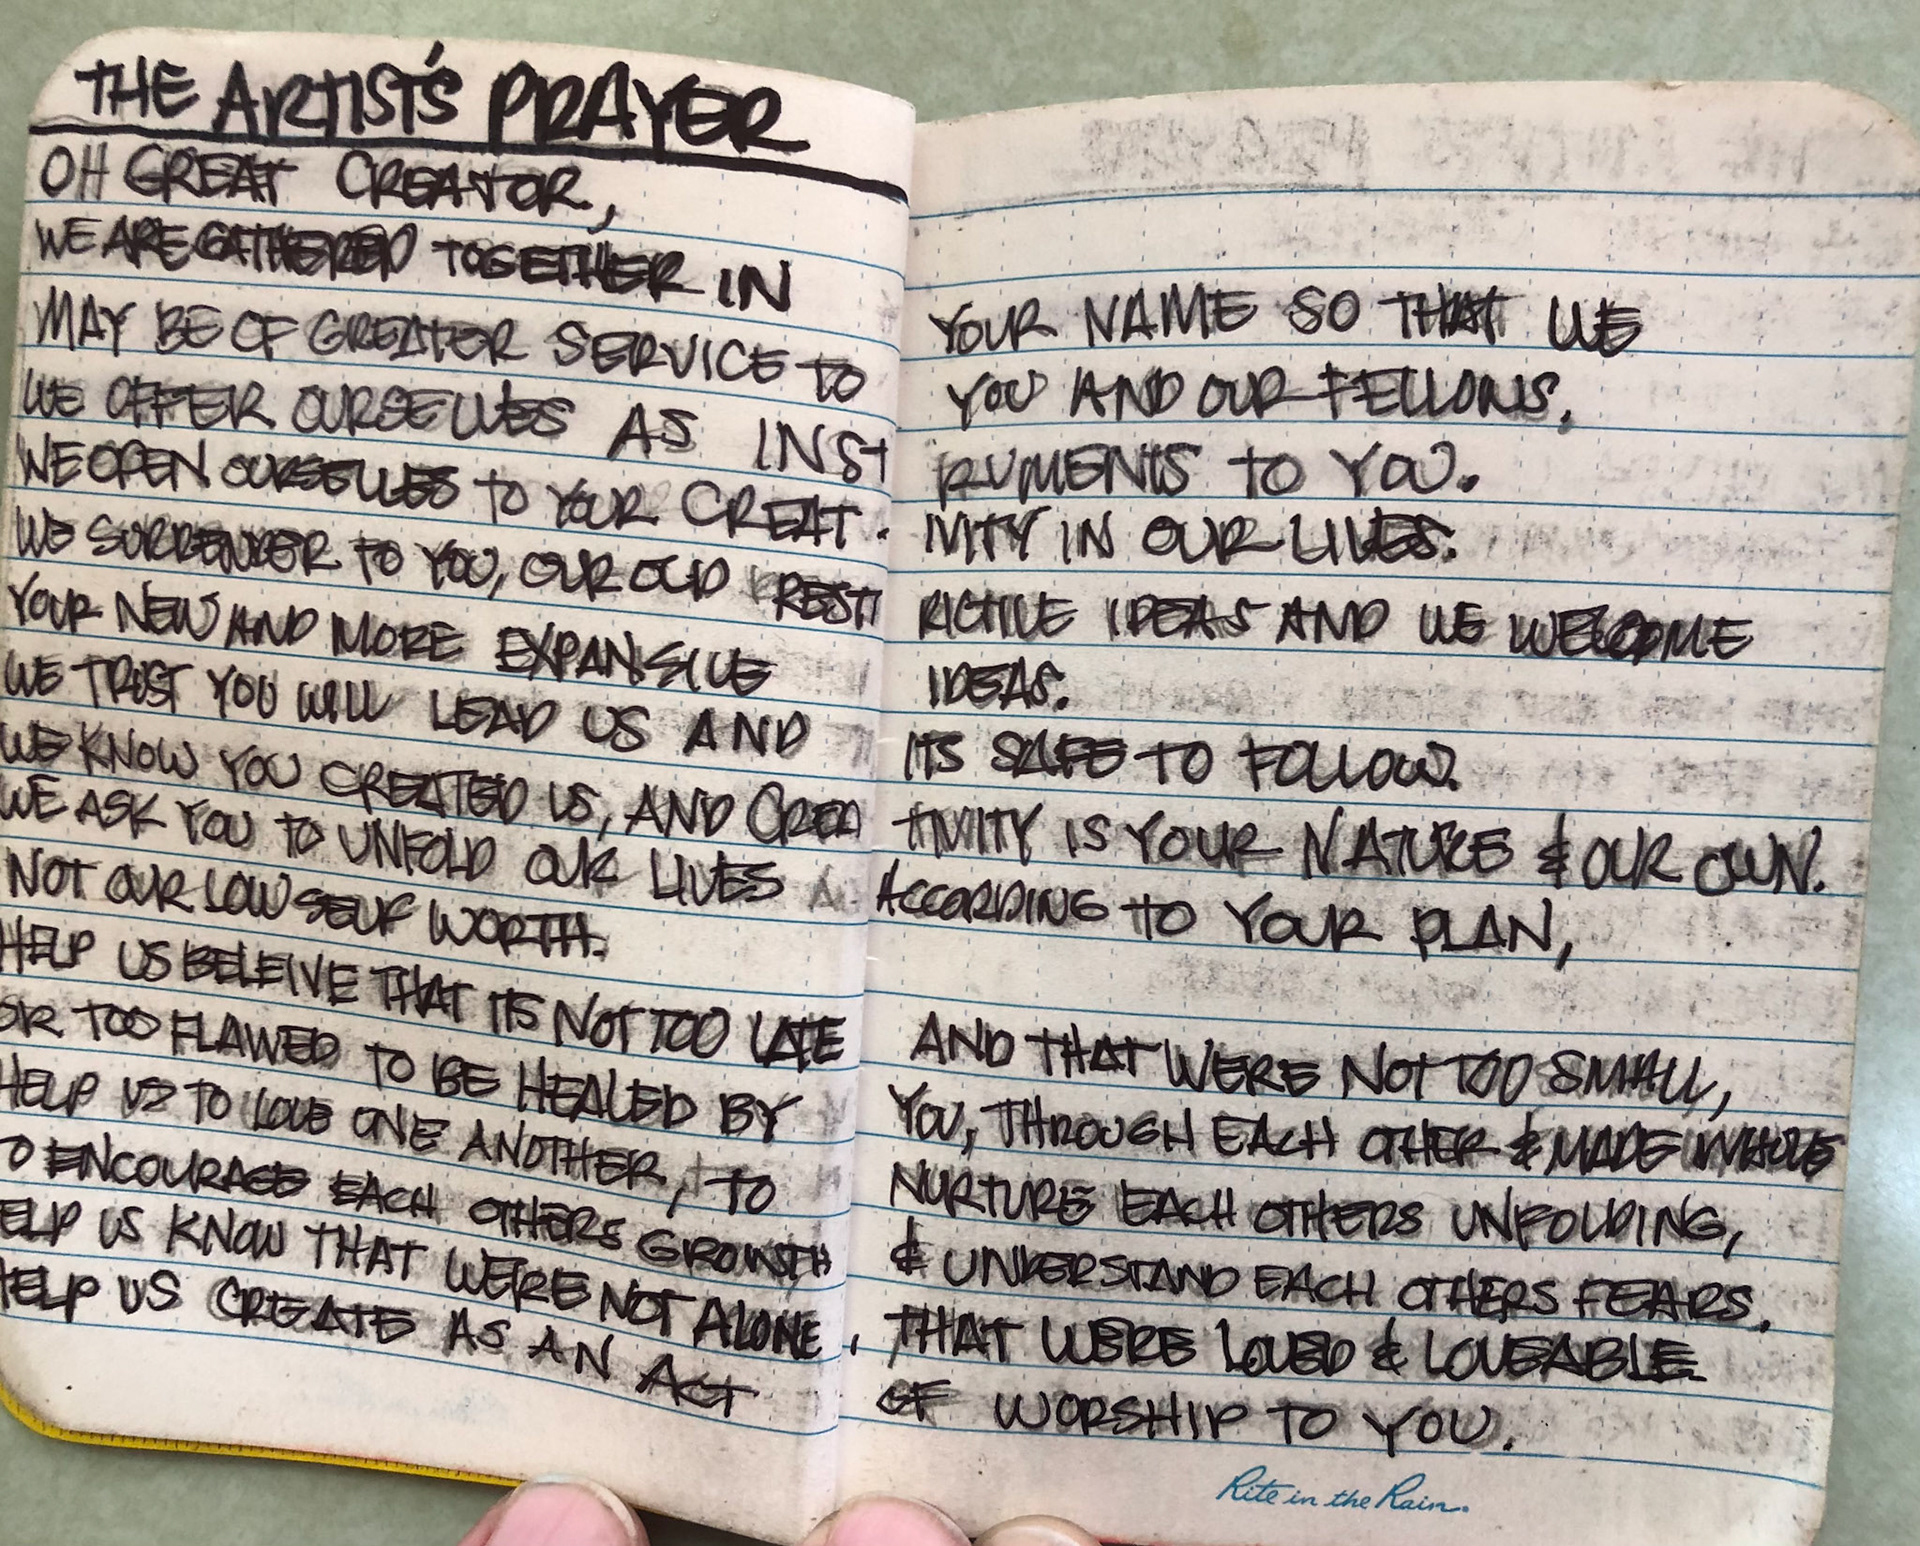 THE ARTIST'S PRAYER
OH GREAT CREATOR,
WE ARE GATHERED TOGETHER IN YOUR NAME SO THAT WE
MAY BE OF GREATER SERVICE TO YOU AND OUR FELLOWS.
WE OFFER OURSELVES AS INSTRUMENTS TO YOU.
WE OPEN OURSELVES TO YOUR CREAT-IVITY IN OUR LIVES.
WE SURRENDER TO YOU, OUR OLD RESTRICTIVE IDEAS AND WE WELCOME
YOUR NEW AND MORE EXPANSIVE IDEAS.
WE TRUST YOU WILL LEAD US AND ITS SAFE TO FOLLOW.
WE KNOW YOU CREATED US, AND CREATIVITY IS YOUR NATURE & OUR OWN.
WE ASK YOU TO UNFOLD OUR LIVES ACCORDING TO YOUR PLAN,
NOT OUR LOW SELF WORTH.
HELP US BELEIVE THAT ITS NOT TOO LATE AND THAT WERE NOT TOO SMALL,
OR TOO FLAWED TO BE HEALED BY YOU, THROUGH EACH OTHER & MADE WHOLE
HELP US TO LOVE ONE ANOTHER, TO NURTURE EACH OTHERS UNFOLDING,
O ENCOURAGE EACH OTHERS GROWTH & UNDERSTAND EACH OTHERS FEARS.
ELP US KNOW THAT WE'RE NOT ALONE, THAT WERE LOVED & LOVEABLE
HELP US CREATE AS AN ACT OF WORSHIP TO YOU.
Rite in the Rain.